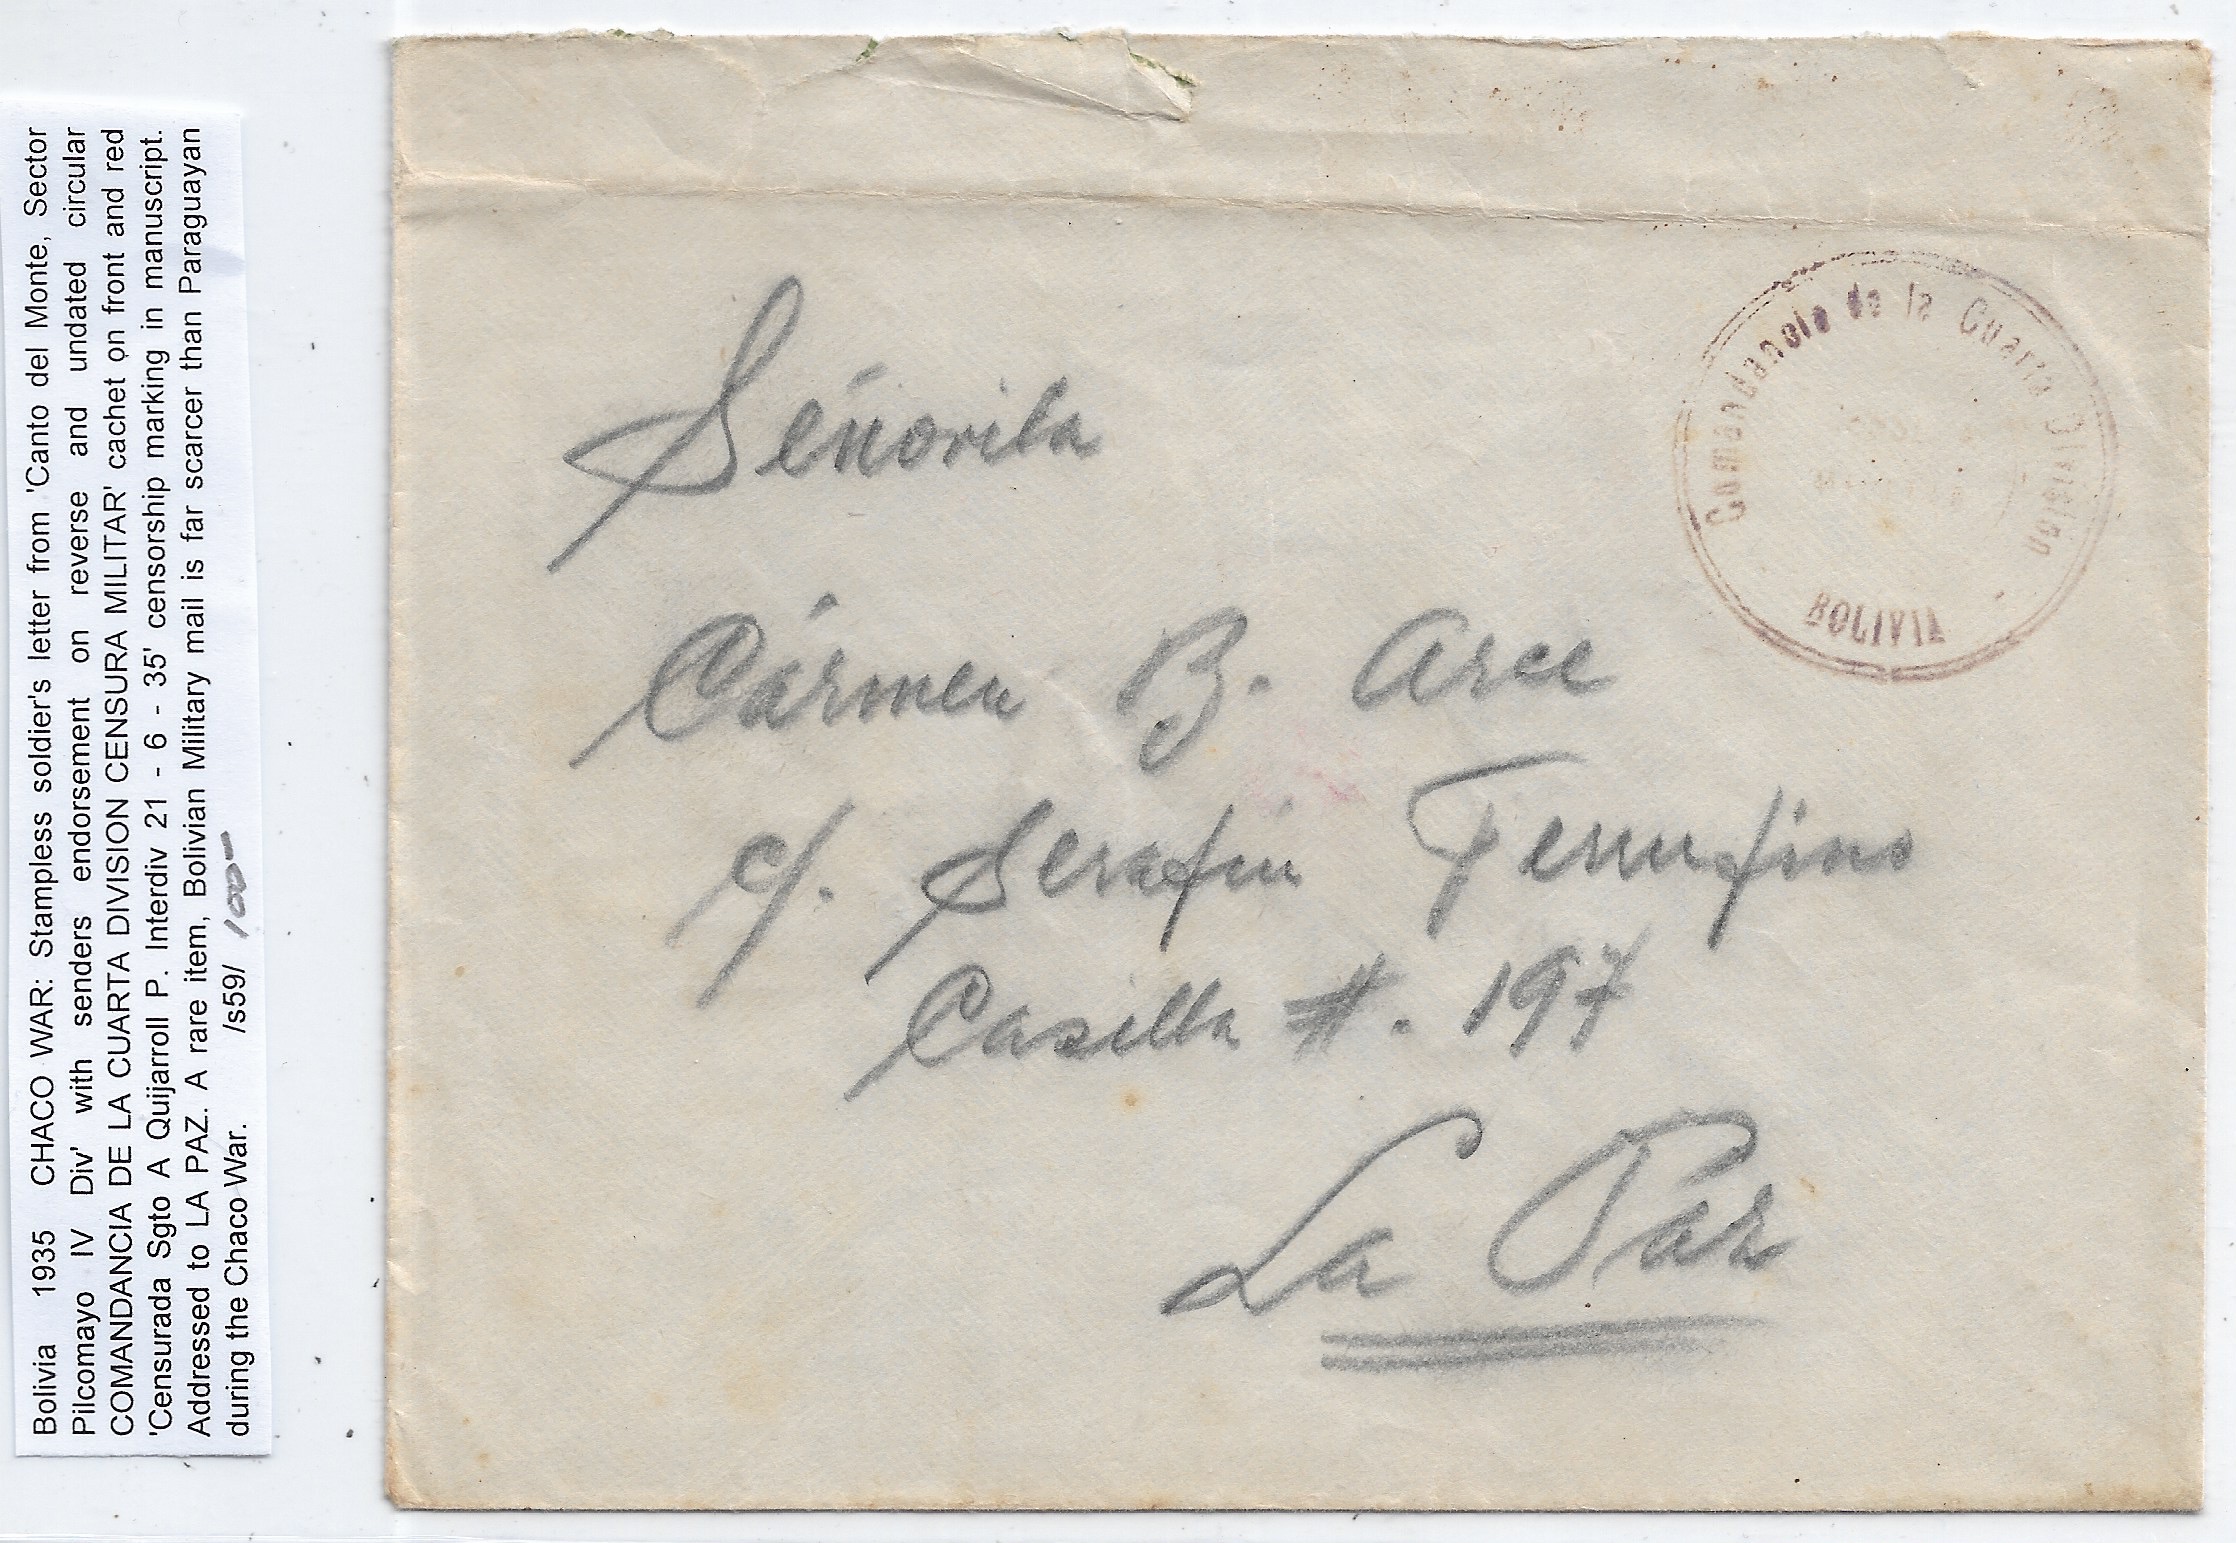 Bolivia 1935 CHACO WAR: Stampless soldier's letter from 'Canto del Monte, Sector
Pilcomayo IV Div' with senders endorsement on reverse and undated circular
COMANDANCIA DE LA CUARTA DIVISION CENSURA MILITAR' cachet on front and red
'Censurada Sgto A Quijarroll P. Interdiv 21 - 6 - 35' censorship marking in manuscript.
Addressed to LA PAZ. A rare item, Bolivian Military mail is far scarcer than Paraguayan
during the Chaco War. /s59/ 100-
Comandancia de la Cuarta División
BOLIVIA
Señorita
Cármen B. Arce
c/. Serafin Ferrufino
Casilla #. 197
La Páz